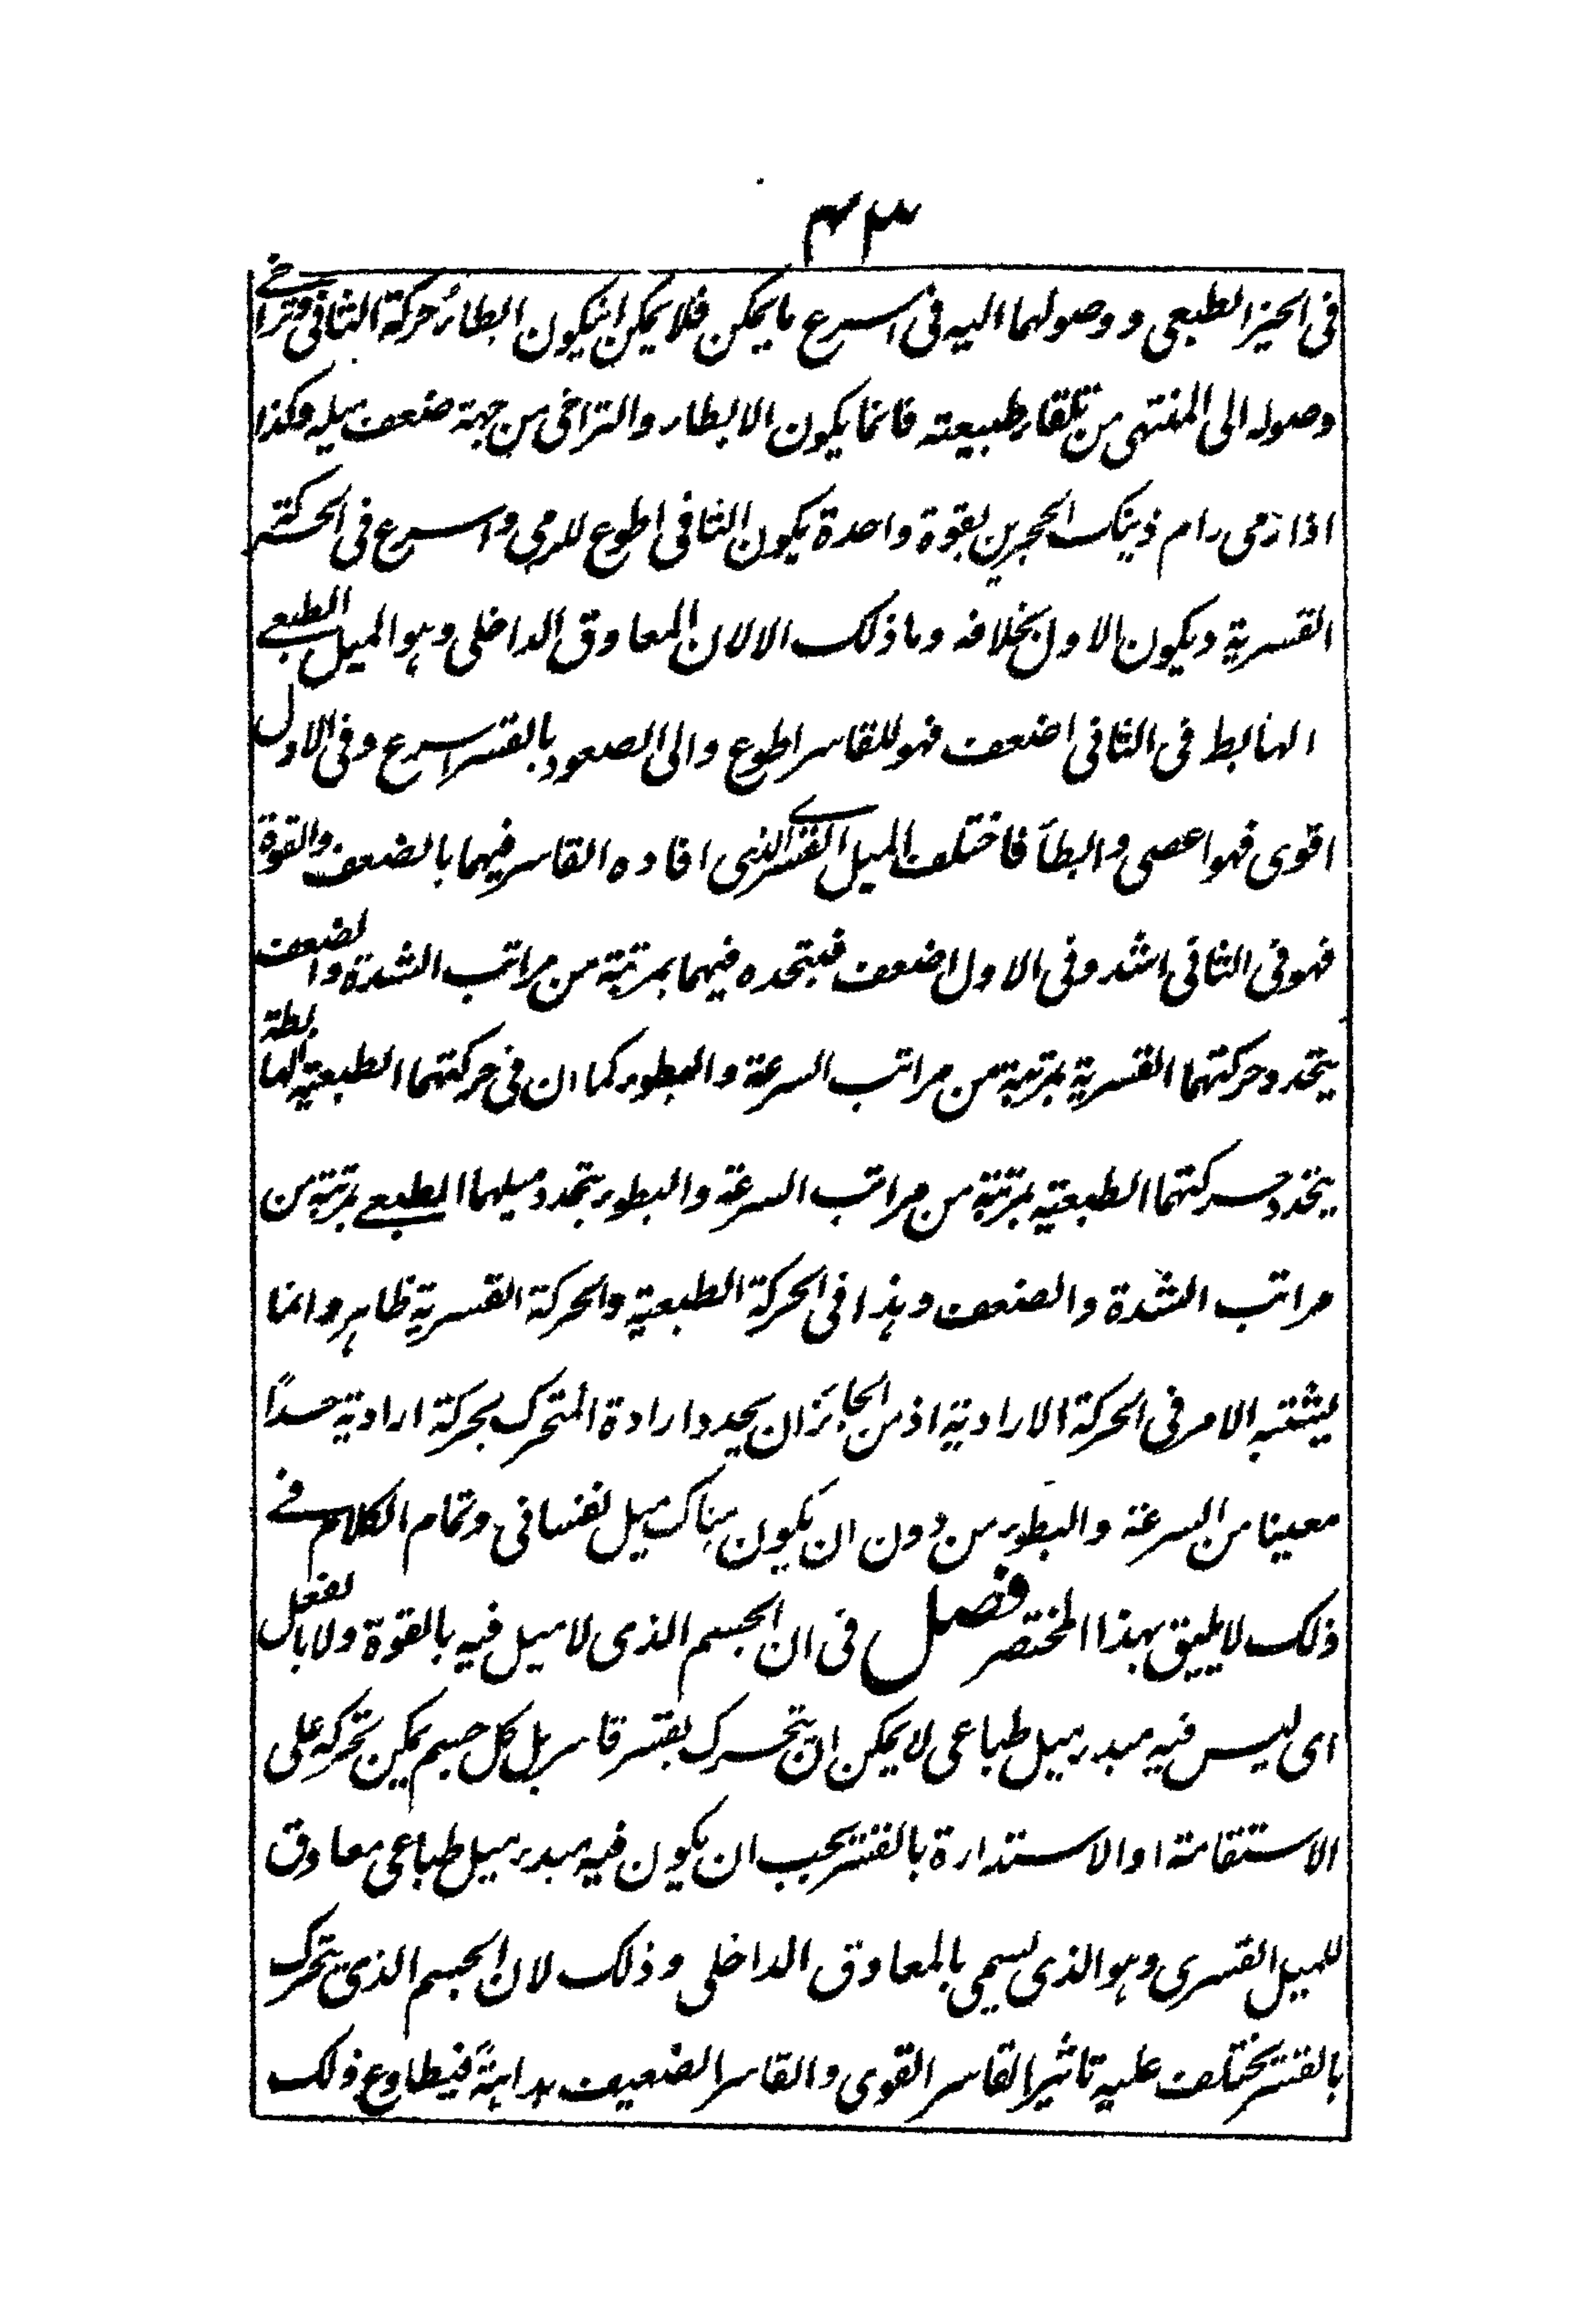 ٤٣
فى الحيز الطبعى و وصولهما اليه فى اسرع ما يمكن فلا يمكن ان يكون ابطاء حركة الثانى وتراخى
وصوله الى المنتهى من تلقاء طبيعته فانما يكون الابطاء والتراخى من جهة ضعف ميله وكذا
اذا رمى رام ذينك الحجرين بقوة واحدة يكون الثانى اطوع للرمى واسرع فى الحركة
القسرية ويكون الاول بخلافه وما ذلك الا لان المعاوق الداخلى وهو الميل الطبعى
الهابط فى الثانى اضعف فهو للقاسر اطوع والى الصعود بالقسر اسرع وفى الاول
اقوى فهو اعصى وابطأ فاختلف الميل القسرى الذى افاده القاسر فيهما بالضعف والقوة
فهو فى الثانى اشد وفى الاول اضعف فبتحدده فيهما بمرتبة من مراتب الشدة والضعف
يتحدد حركتهما القسرية بمرتبة من مراتب السرعة والبطوء كما ان فى حركتهما الطبعية الهابطة
يتحدد حركتهما الطبعية بمرتبة من مراتب السرعة والبطوء بتحدد ميلهما الطبعى بمرتبة من
مراتب الشدة والضعف وهذا فى الحركة الطبعية والحركة القسرية ظاهر وانما
يشتبه الامر فى الحركة الارادية اذ من الجائز ان يحدد ارادة المتحرك بحركة ارادية حداً
معينا من السرعة والبطوء من دون ان يكون هناك ميل نفسانى وتمام الكلام فى
ذلك لا يليق بهذا المختصر فصل فى ان الجسم الذى لا ميل فيه بالقوة ولا بالفعل
اى ليس فيه مبدء ميل طباعى لا يمكن ان يتحرك بقسر قاسر بل كل جسم يمكن تحركه على
الاستقامة او الاستدارة بالقسر يجب ان يكون فيه مبدء ميل طباعى معاوق
للميل القسرى وهو الذى يسمى بالمعاوق الداخلى وذلك لان الجسم الذى يتحرك
بالقسر يختلف عليه تاثير القاسر القوى والقاسر الضعيف بداهةً فيطاوع ذلك